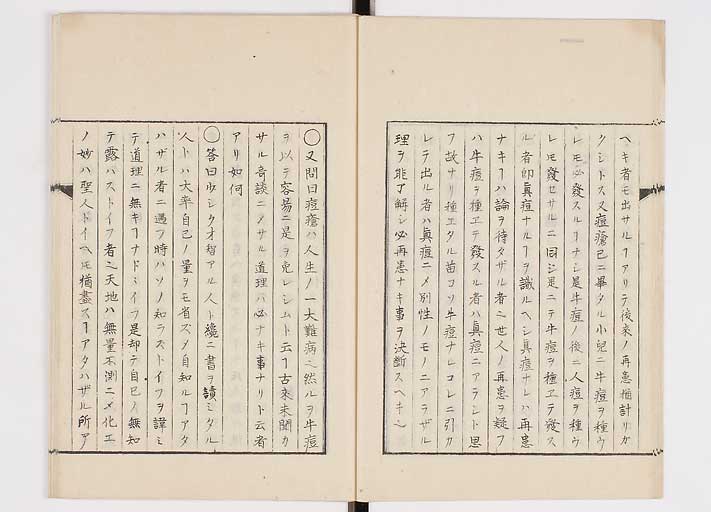 ヘキ者モ出サルヿアリテ後来ノ再患猶計リカ
クシトス又痘瘡已ニ畢タル小兒ニ牛痘ヲ種ウ
レモ必發スルヿナシ是牛痘ノ後ニ人痘ヲ種ウ
レモ發セサルニ同シ是ニテ牛痘ヲ種ヱテ發ス
ル者即眞痘ナルヿヲ識ルヘシ眞痘ナレハ再患
ナキヿハ論ヲ待タザル者ニ世人ノ再患ヲ疑フ
ハ牛痘ヲ種ヱテ發スル者ハ真痘ニアラシト思
フ故ナリ種ヱタル苗コソ牛痘ナレコレニ引カ
レテ出ル者ハ真痘ニメ別性ノモノニアラザル
理ヲ能了解シ必再患ナキ事ヲ決断スヘキ也
○又問曰痘瘡ハ人生ノ一大難病也然ルヲ牛痘
ヲ以テ容易ニ是ヲ免レシムト云ヿ古來未聞カ
サル奇談ニメサル道理ハ必ナキ事ナリト云者
アリ如何
○答曰少シク才智アル人ト纔ニ書ヲ讀ミタル
人トハ大率自己ノ量ヲモ省ズメ自知ルヿアタ
ハザル者ニ遇フ時ハソノ知ラズトイフヲ諱ミ
テ道理ニ無キヿナドミイフ是却テ自己ノ無知
テ露ハストイフ者也天地ハ無量不測ニメ化工
ノ妙ハ聖人トイヘモ猶盡スヿアタハザル所ア